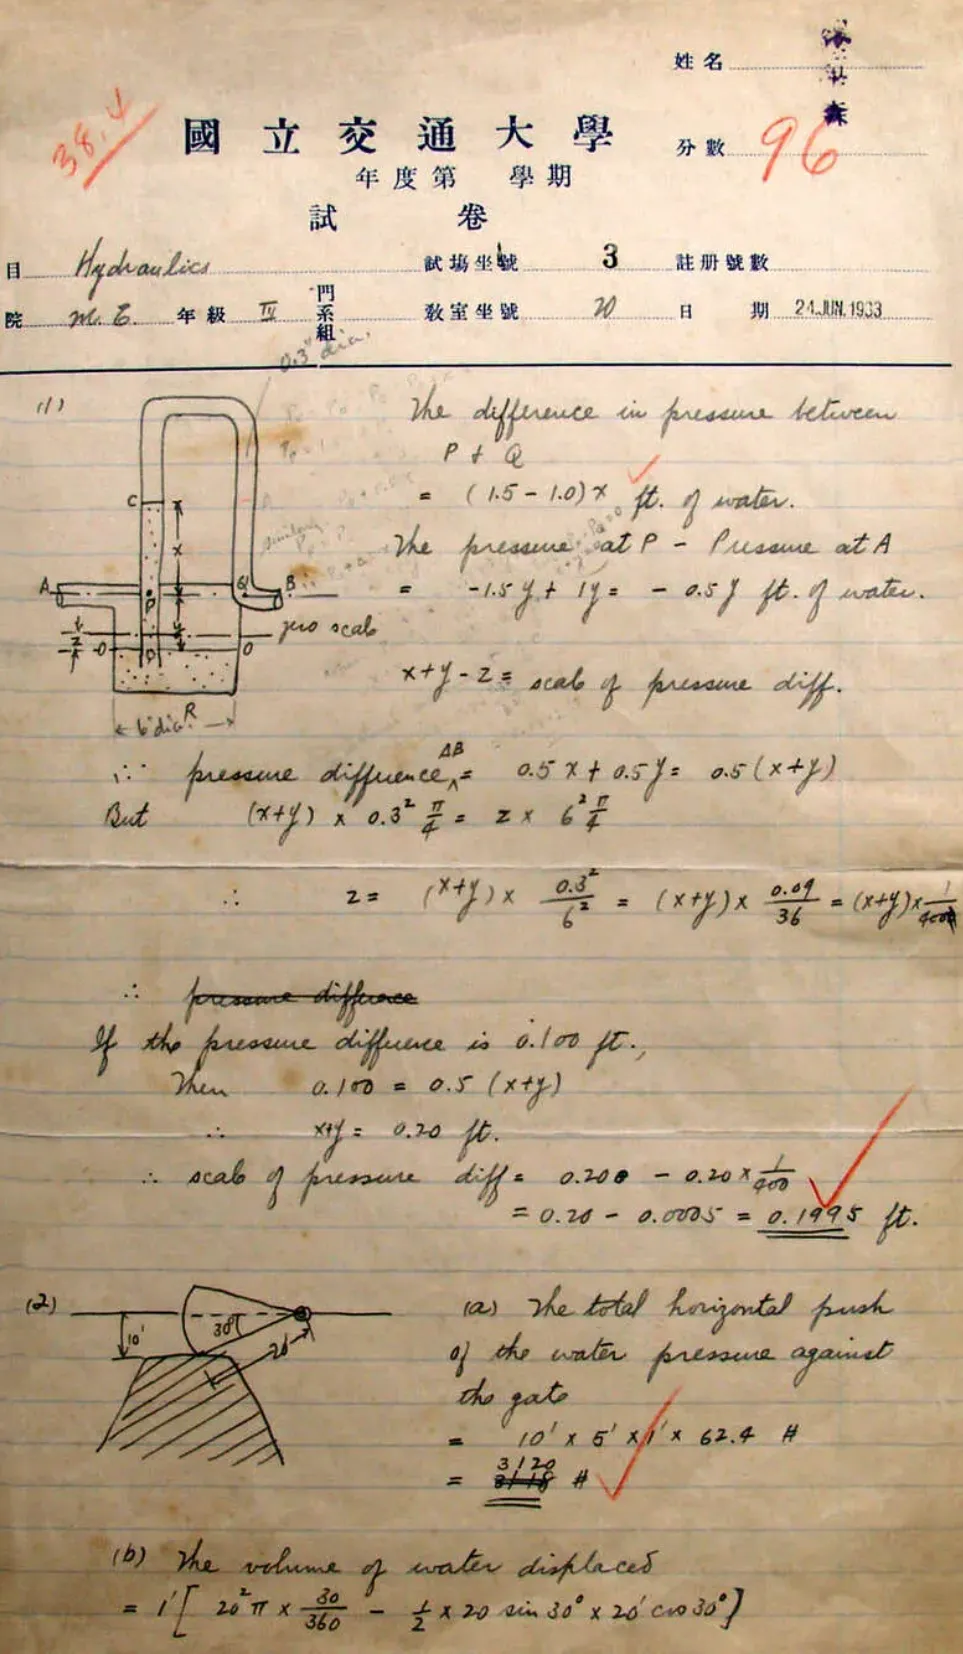 姓名
38.4
國立交通大學
分數 96
年度第 學期
試 卷
目 Hydraulics 試場坐號 3 註册號數
院 M.E. 年級 IV 門系組 教室坐號 20 日期 24.JUN.1933
0.3" dia.
(1)
The difference in pressure between
P + Q
= (1.5 - 1.0)x ft. of water.
The pressure at P - Pressure at A
= -1.5y + 1y = - 0.5y ft. of water.
C
x
A P Q B
y
zero scale
z
O O
D
R
6" dia.
x+y-z = scale of pressure diff.
∴ pressure difference AB = 0.5x + 0.5y = 0.5(x+y)
But (x+y) × 0.3² π/4 = z × 6² π/4
∴ z = (x+y) × 0.3²/6² = (x+y) × 0.09/36 = (x+y) × 1/400
∴ pressure difference
If the pressure difference is 0.100 ft.,
Then 0.100 = 0.5 (x+y)
∴ x+y = 0.20 ft.
∴ scale of pressure diff = 0.200 - 0.20 × 1/400
= 0.20 - 0.0005 = 0.1995 ft.
(2)
10'
30°
20'
(a) The total horizontal push
of the water pressure against
the gate
= 10' × 5' × 1' × 62.4 #
3120
= 3118 #
(b) The volume of water displaced
= 1' [ 20² π × 30/360 - 1/2 × 20 sin 30° × 20' cos 30° ]